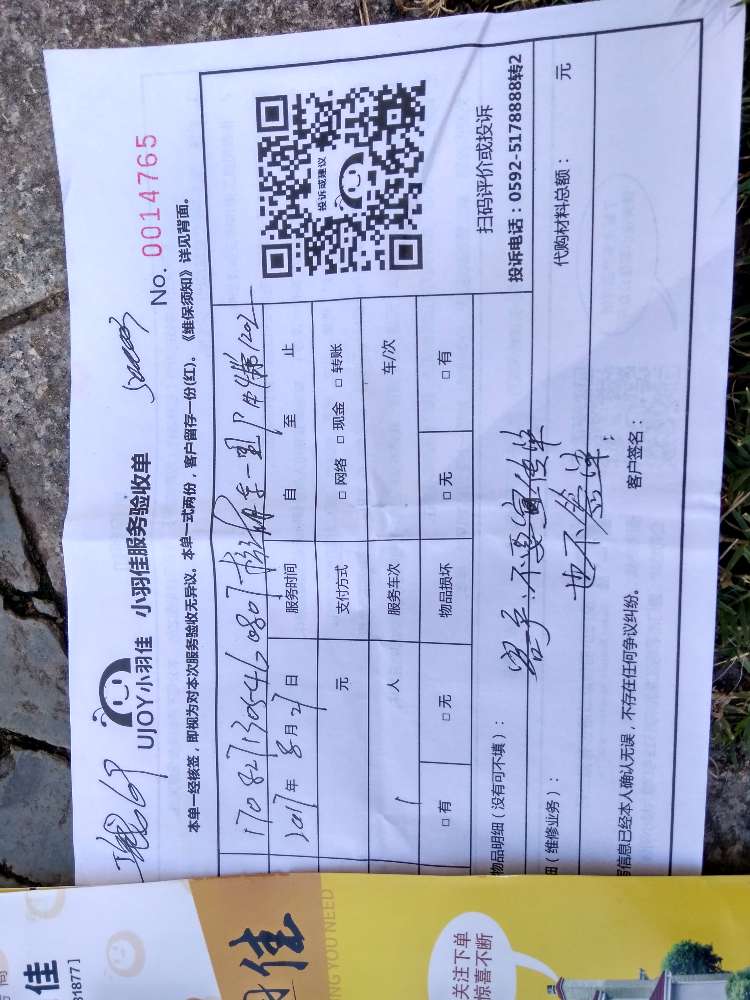 UJOY小羽佳 小羽佳服务验收单
No. 0014765
本单一经核签，即视为对本次服务验收无异议。本单一式两份，客户留存一份(红)。《维保须知》详见背面。
2017年 8月27日 服务时间 自 至 止
元 支付方式 □ 网络 □ 现金 □ 转账
1 人 服务车次 车/次
□ 有 □ 无 物品损坏 □ 无 □ 有
投诉或建议
扫码评价或投诉
投诉电话：0592-5178888转2
物品明细（没有可不填）：
客户：不要宣传单
也不签单；
（维修业务）： 代购材料总额： 元
信息已经本人确认无误，不存在任何争议纠纷。 客户签名：
佳
31877]
羽佳
NG YOU NEED
关注下单
惊喜不断